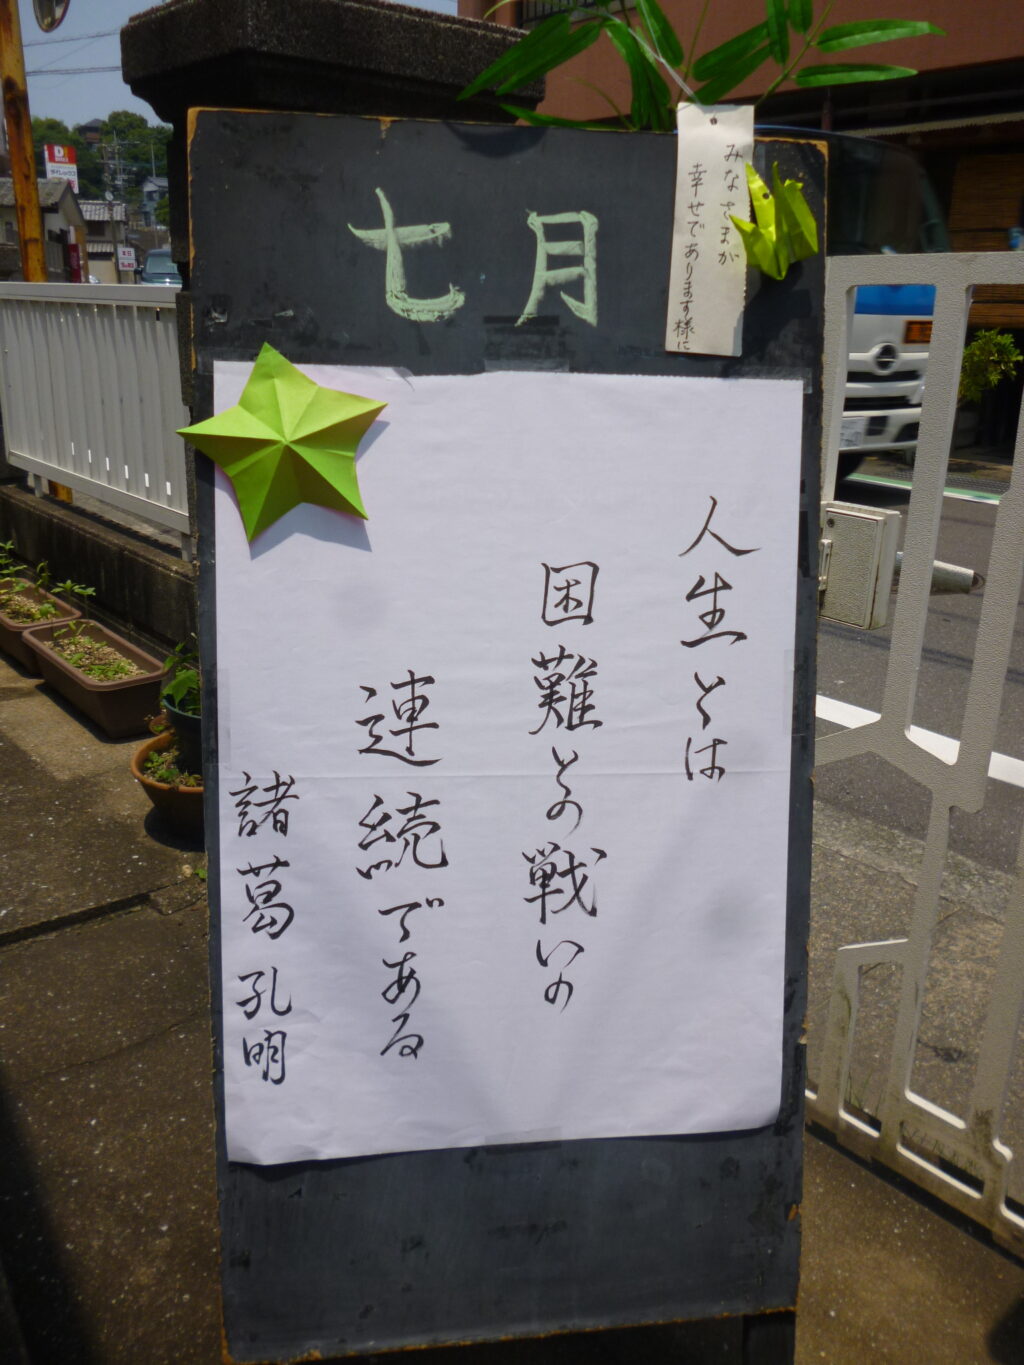 七月
みなさまが
幸せであります様に
人生とは
困難との戦いの
連続である
諸葛孔明